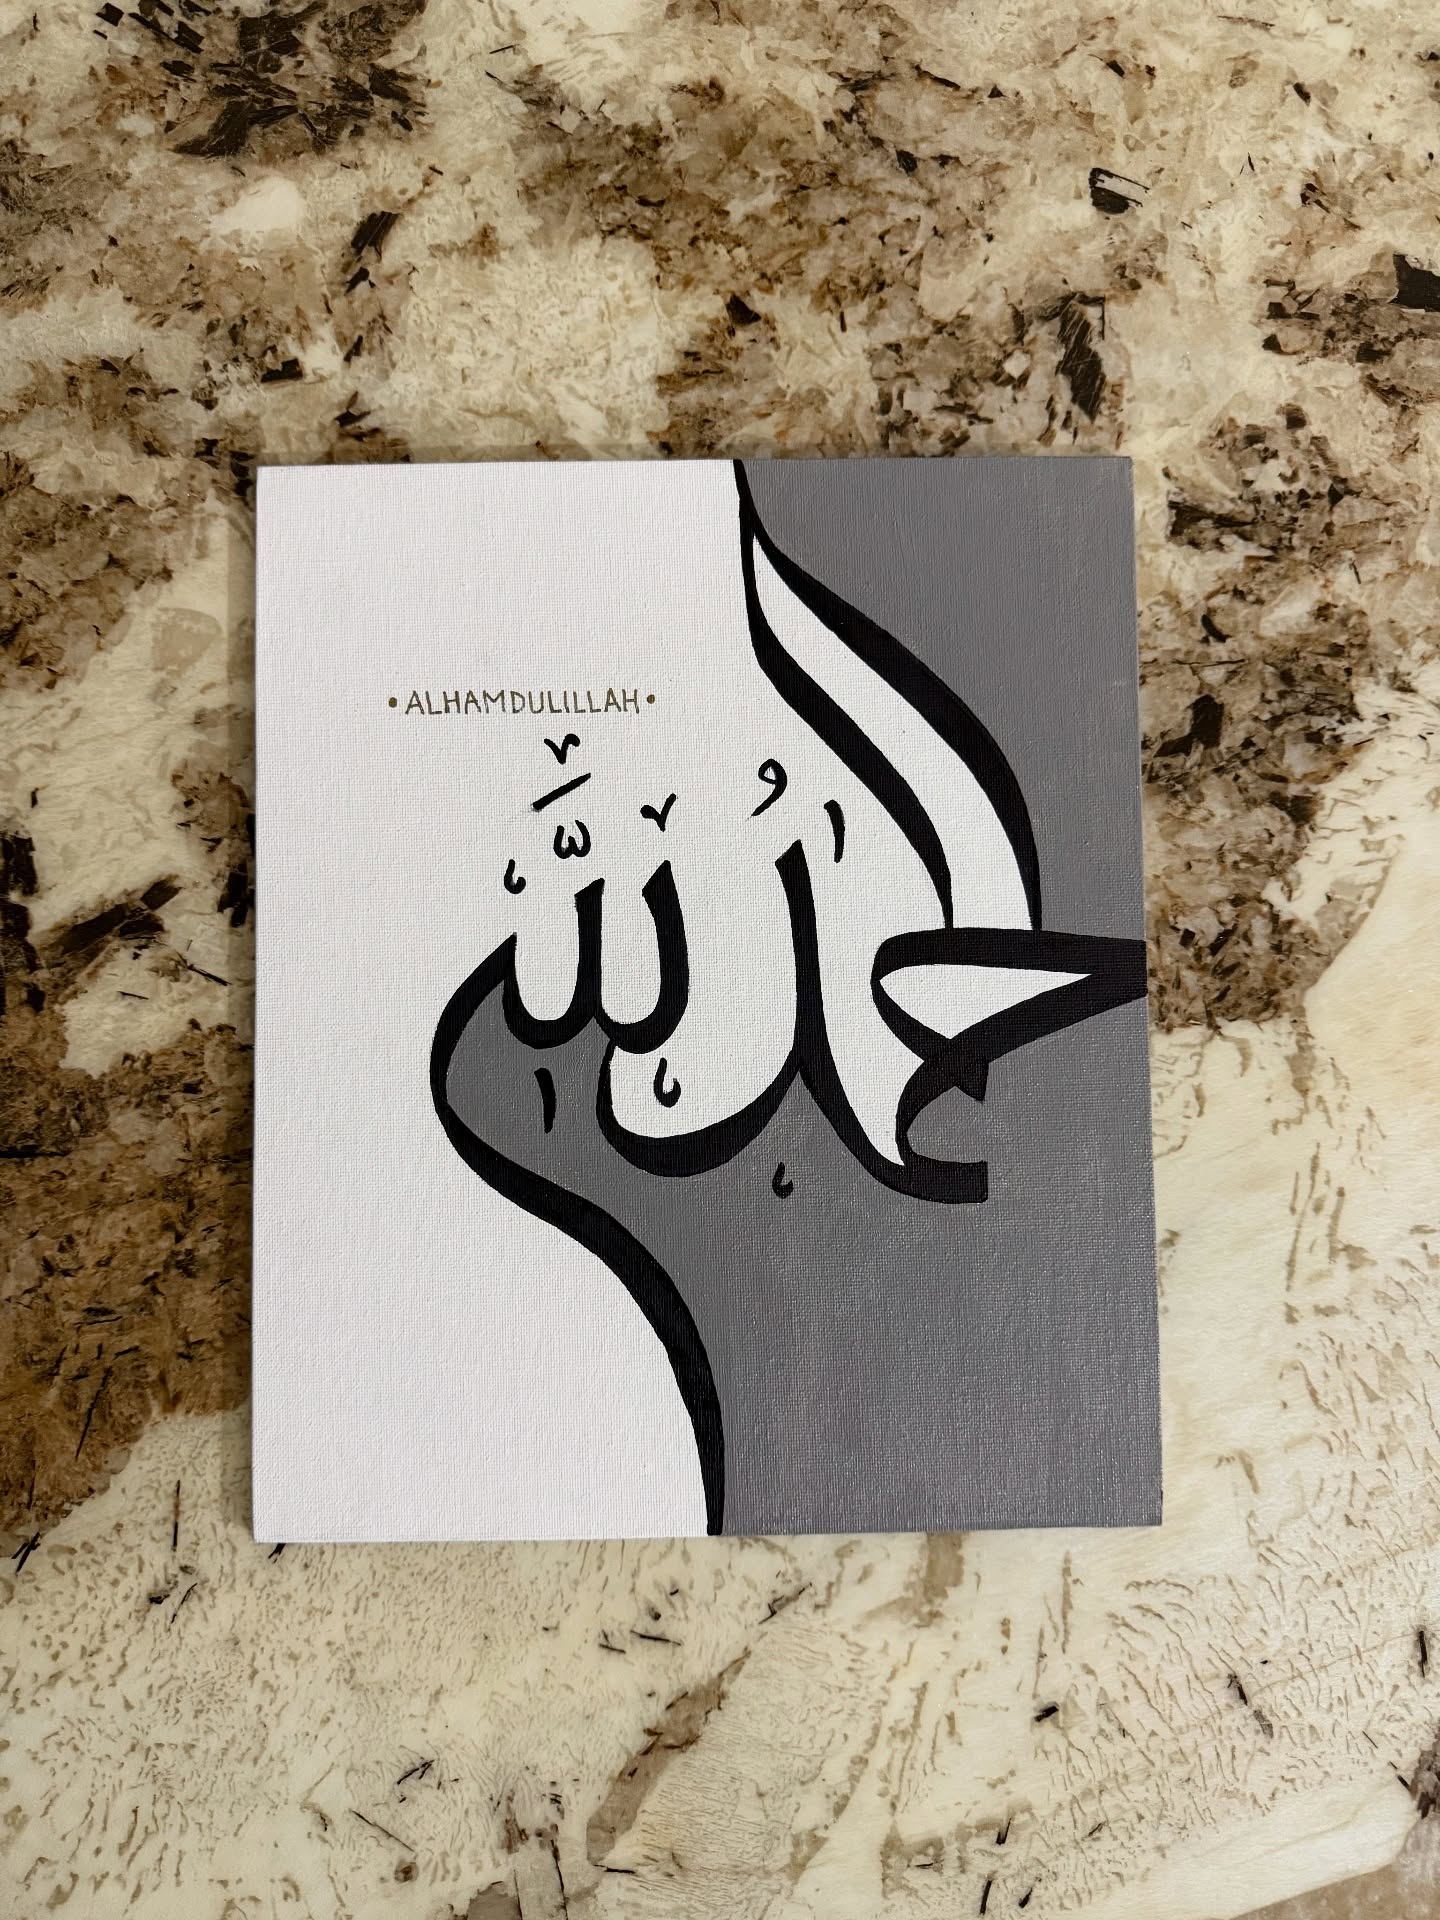 • ALHAMDULILLAH •
الحمد لله